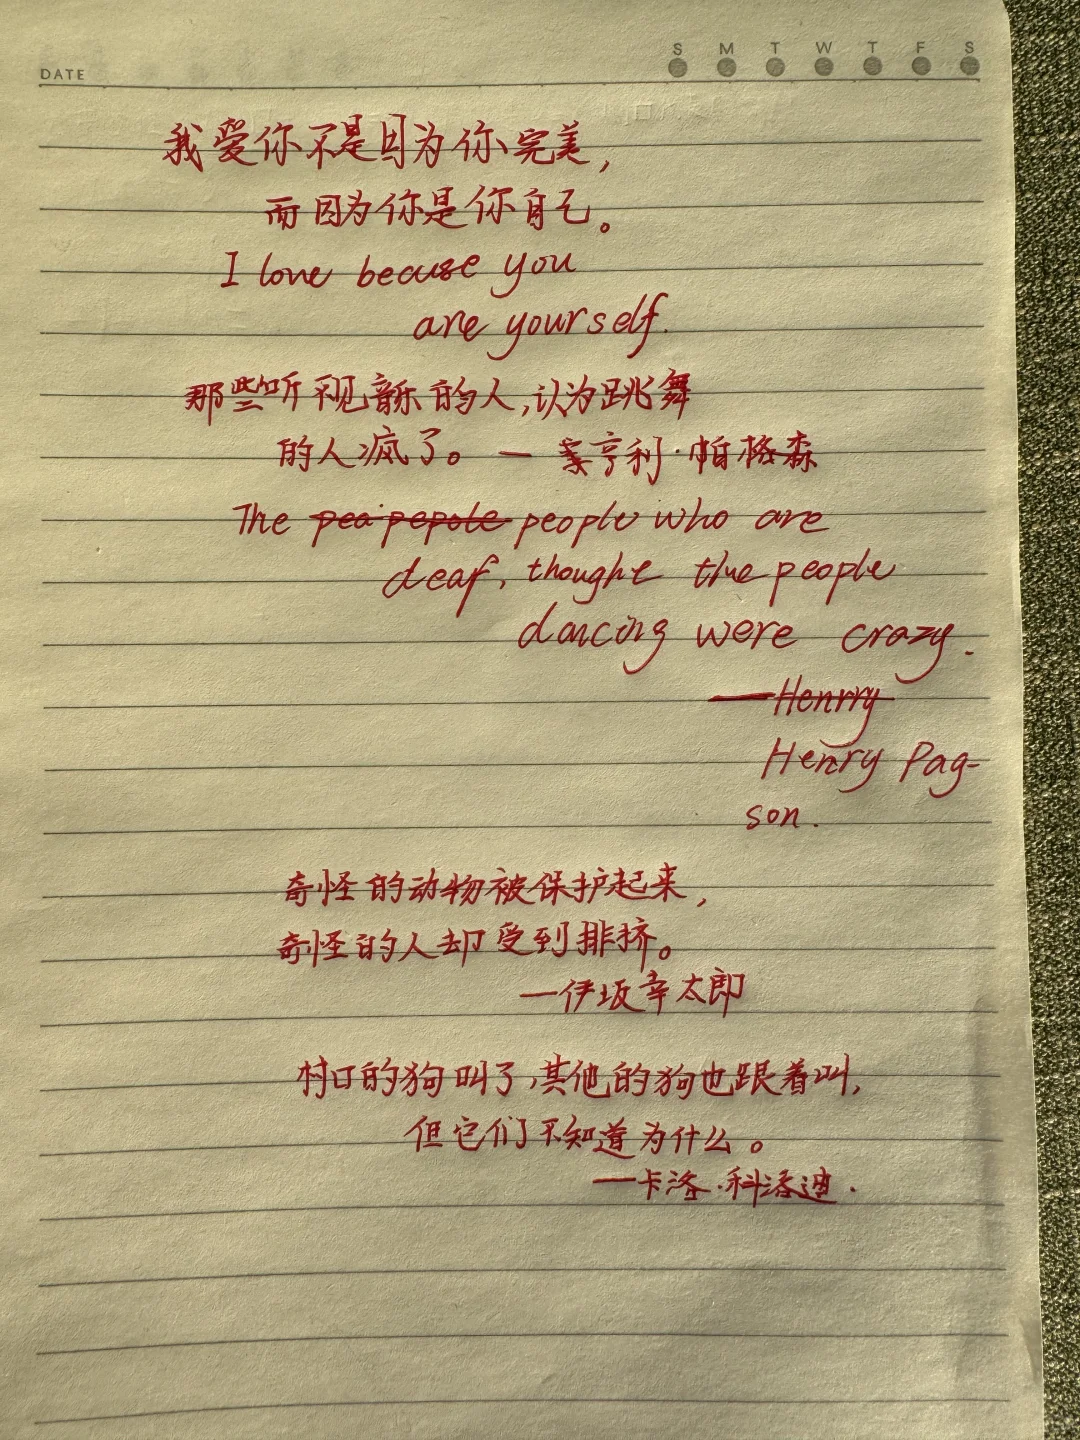 DATE
S M T W T F S
我爱你不是因为你完美，
而因为你是你自己。
I love becuse you
are yourself.
那些听不见音乐的人，认为跳舞
的人疯了。— 亨利·帕格森
The people who are
deaf, thought the people
dancing were crazy.
—Henrry
Henry Pag-
son.
奇怪的动物被保护起来，
奇怪的人却受到排挤。
—伊坂幸太郎
村口的狗叫了，其他的狗也跟着叫，
但它们不知道为什么。
—卡洛·科洛迪.